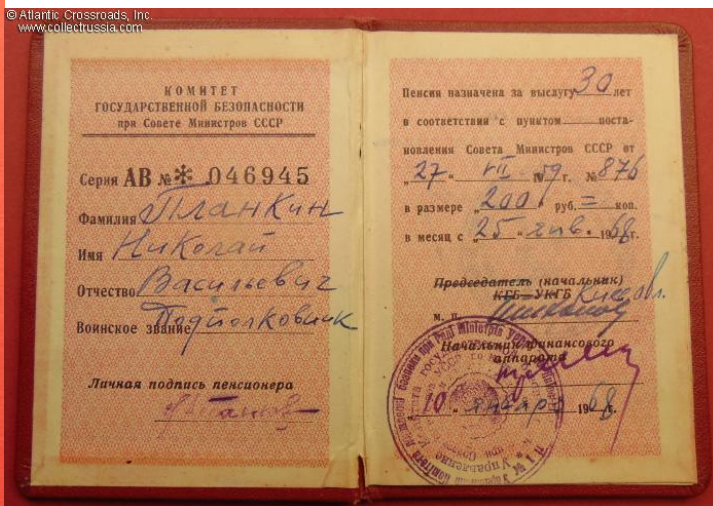 © Atlantic Crossroads, Inc.
www.collectrussia.com
КОМИТЕТ
ГОСУДАРСТВЕННОЙ БЕЗОПАСНОСТИ
при Совете Министров СССР
Серия АВ №* 046945
Фамилия Планкин
Имя Николай
Отчество Васильевич
Воинское звание Подполковник
Личная подпись пенсионера
Пенсия назначена за выслугу 30 лет
в соответствии с пунктом поста-
новления Совета Министров СССР от
„27" VII 1959 г. № 876
в размере „200" руб. = коп.
в месяц с „25" янв. 1968 г.
Председатель (начальник)
КГБ—УКГБ
М. п.
Начальник финансового
аппарата
„10" января 1968 г.